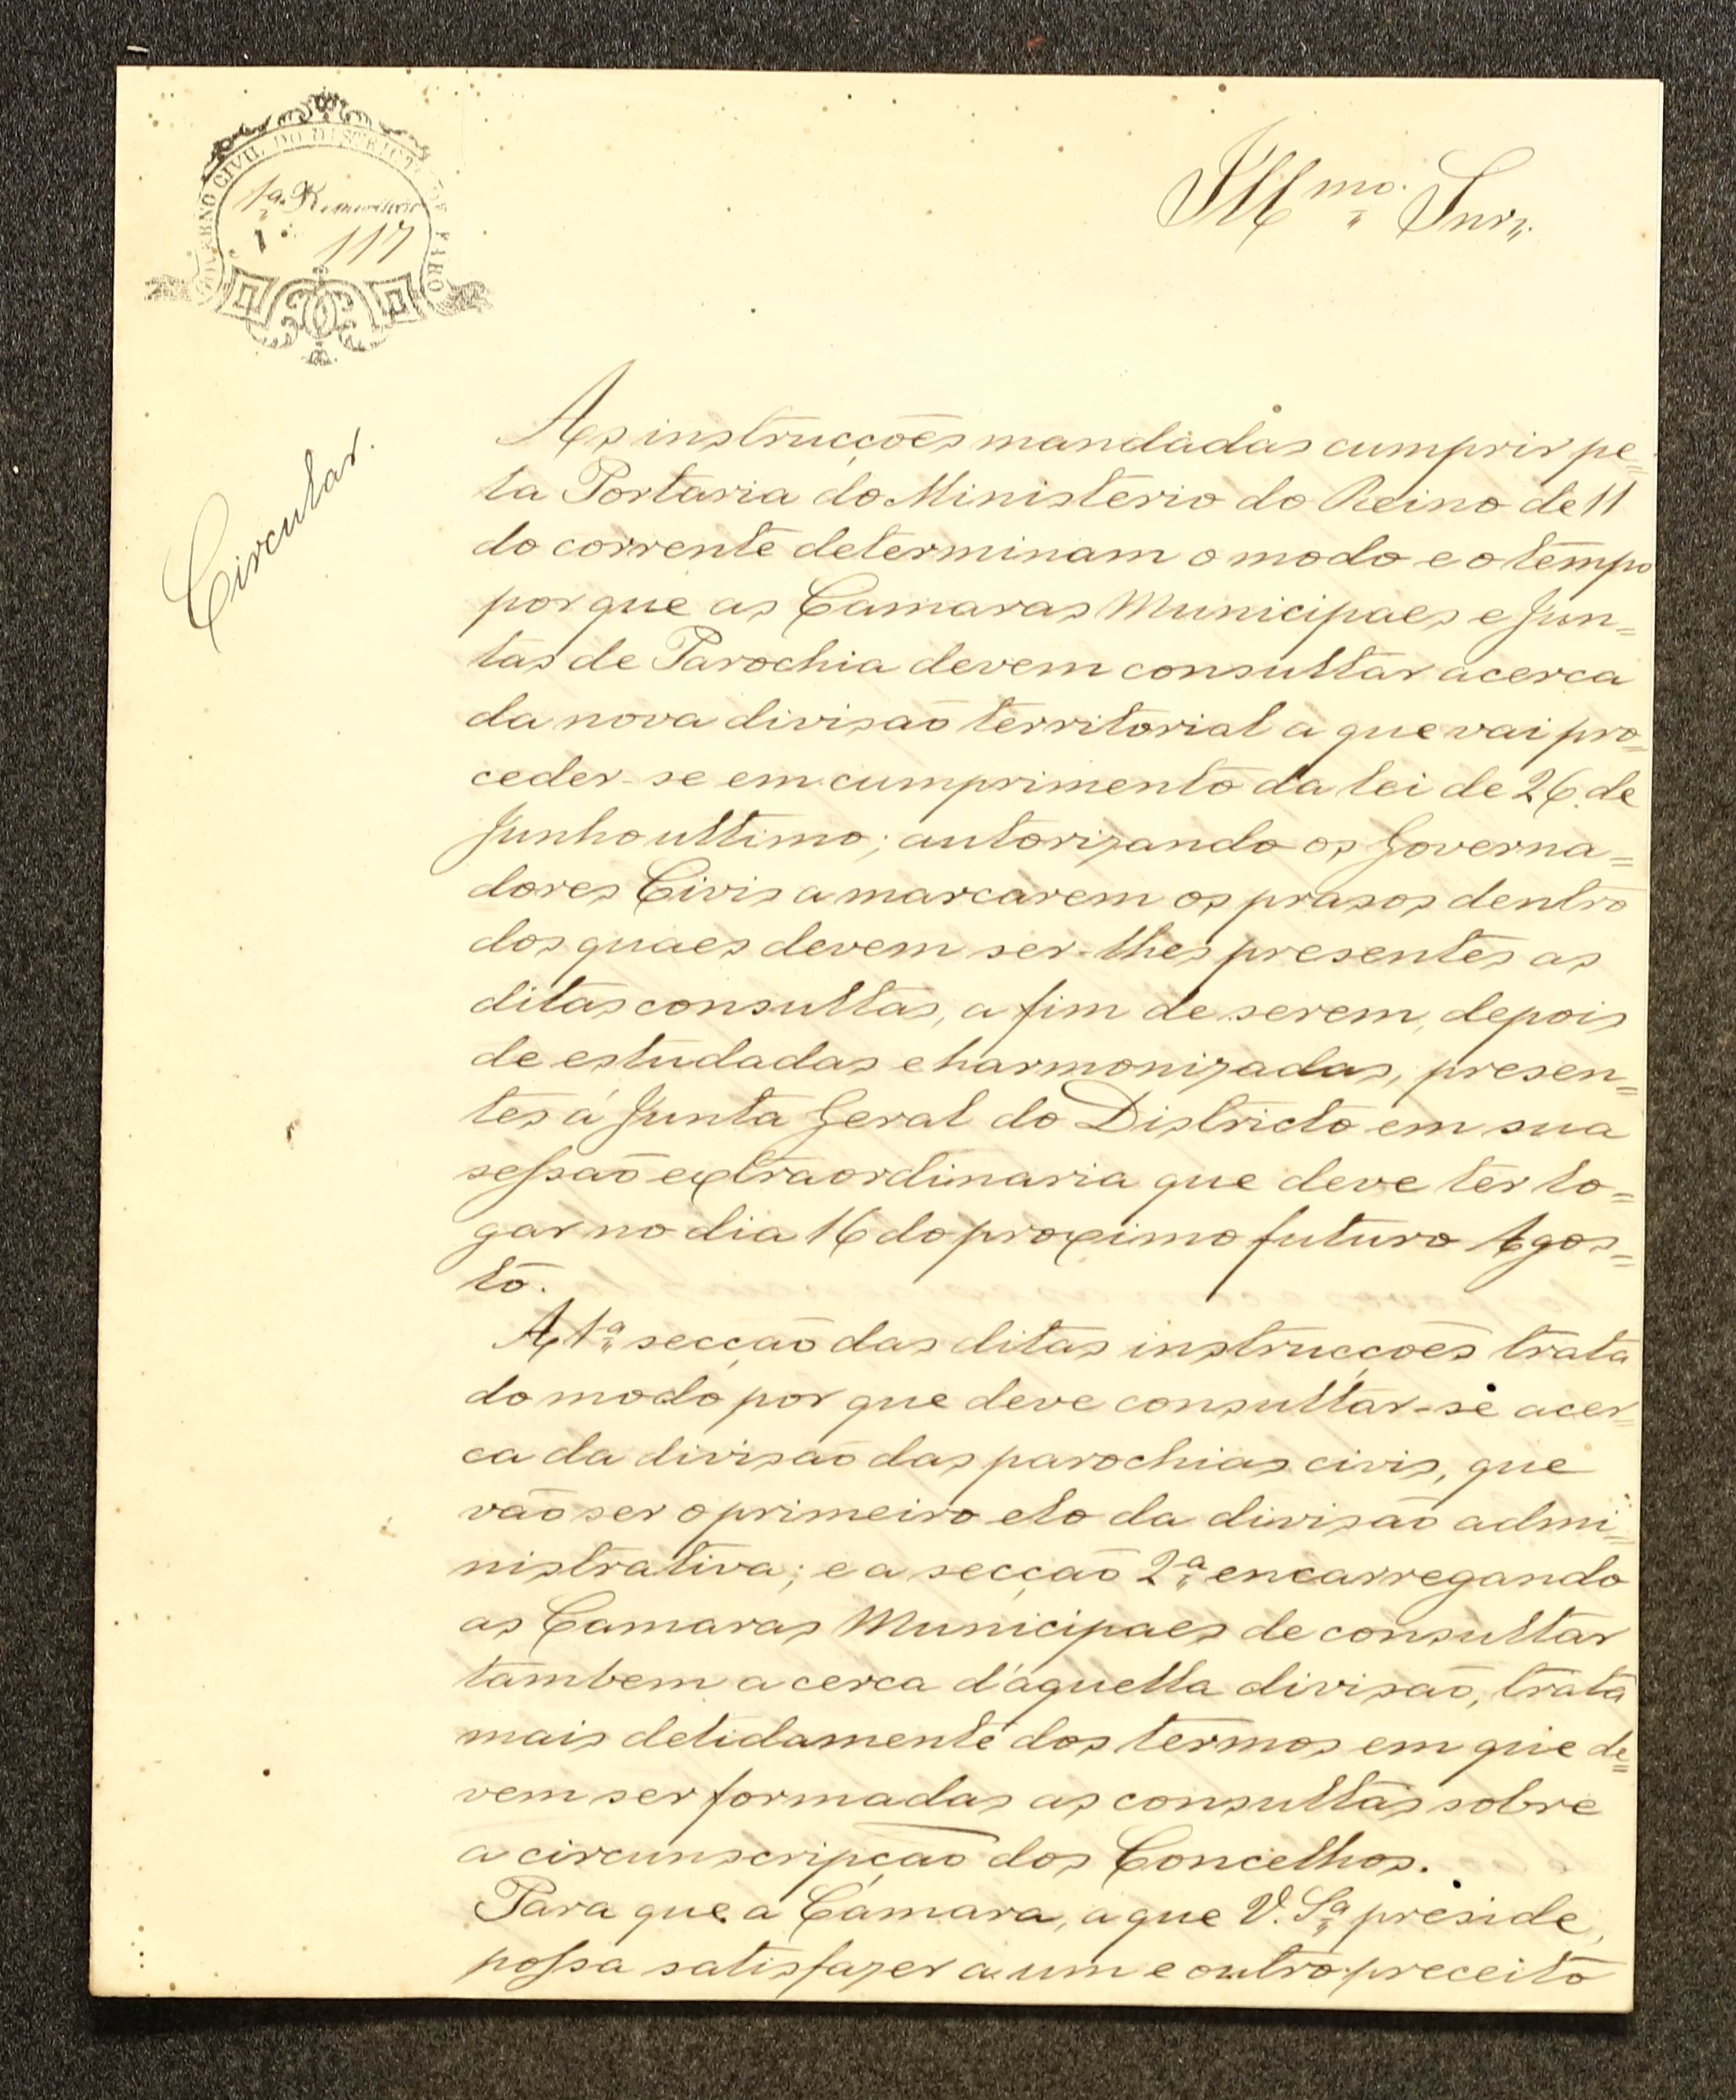 GOVERNO CIVIL DO DISTRICTO DE FARO
1ª
1ª 117
Illmo. Snr.
Circular.
As instrucções mandadas cumprir pe=
la Portaria do Ministerio do Reino de 11
do corrente determinam o modo e o tempo
por que as Camaras Municipaes e Jun=
tas de Parochia devem consultar acerca
da nova divisão territorial a que vai pro=
ceder-se em cumprimento da lei de 26 de
Junho ultimo; autorizando os Governa=
dores Civis a marcarem os prasos dentro
dos quaes devem ser-lhes presentes as
ditas consultas, a fim de serem, depois
de estudadas e harmonizadas, presen=
tes á Junta Geral do Districto em sua
sessão extraordinaria que deve ter lo=
gar no dia 16 do proximo futuro Agos=
to.
A 1ª secção das ditas instrucções trata
do modo por que deve consultar-se acer=
ca da divisão das parochias civis, que
vão ser o primeiro elo da divisão admi=
nistrativa; e a secção 2ª encarregando
as Camaras Municipaes de consultar
tambem acerca d'aquella divisão, trata
mais detidamente dos termos em que de=
vem ser formadas as consultas sobre
a circunscripção dos Concelhos.
Para que a Câmara, a que V. Sª preside,
possa satisfazer a um e outro preceito